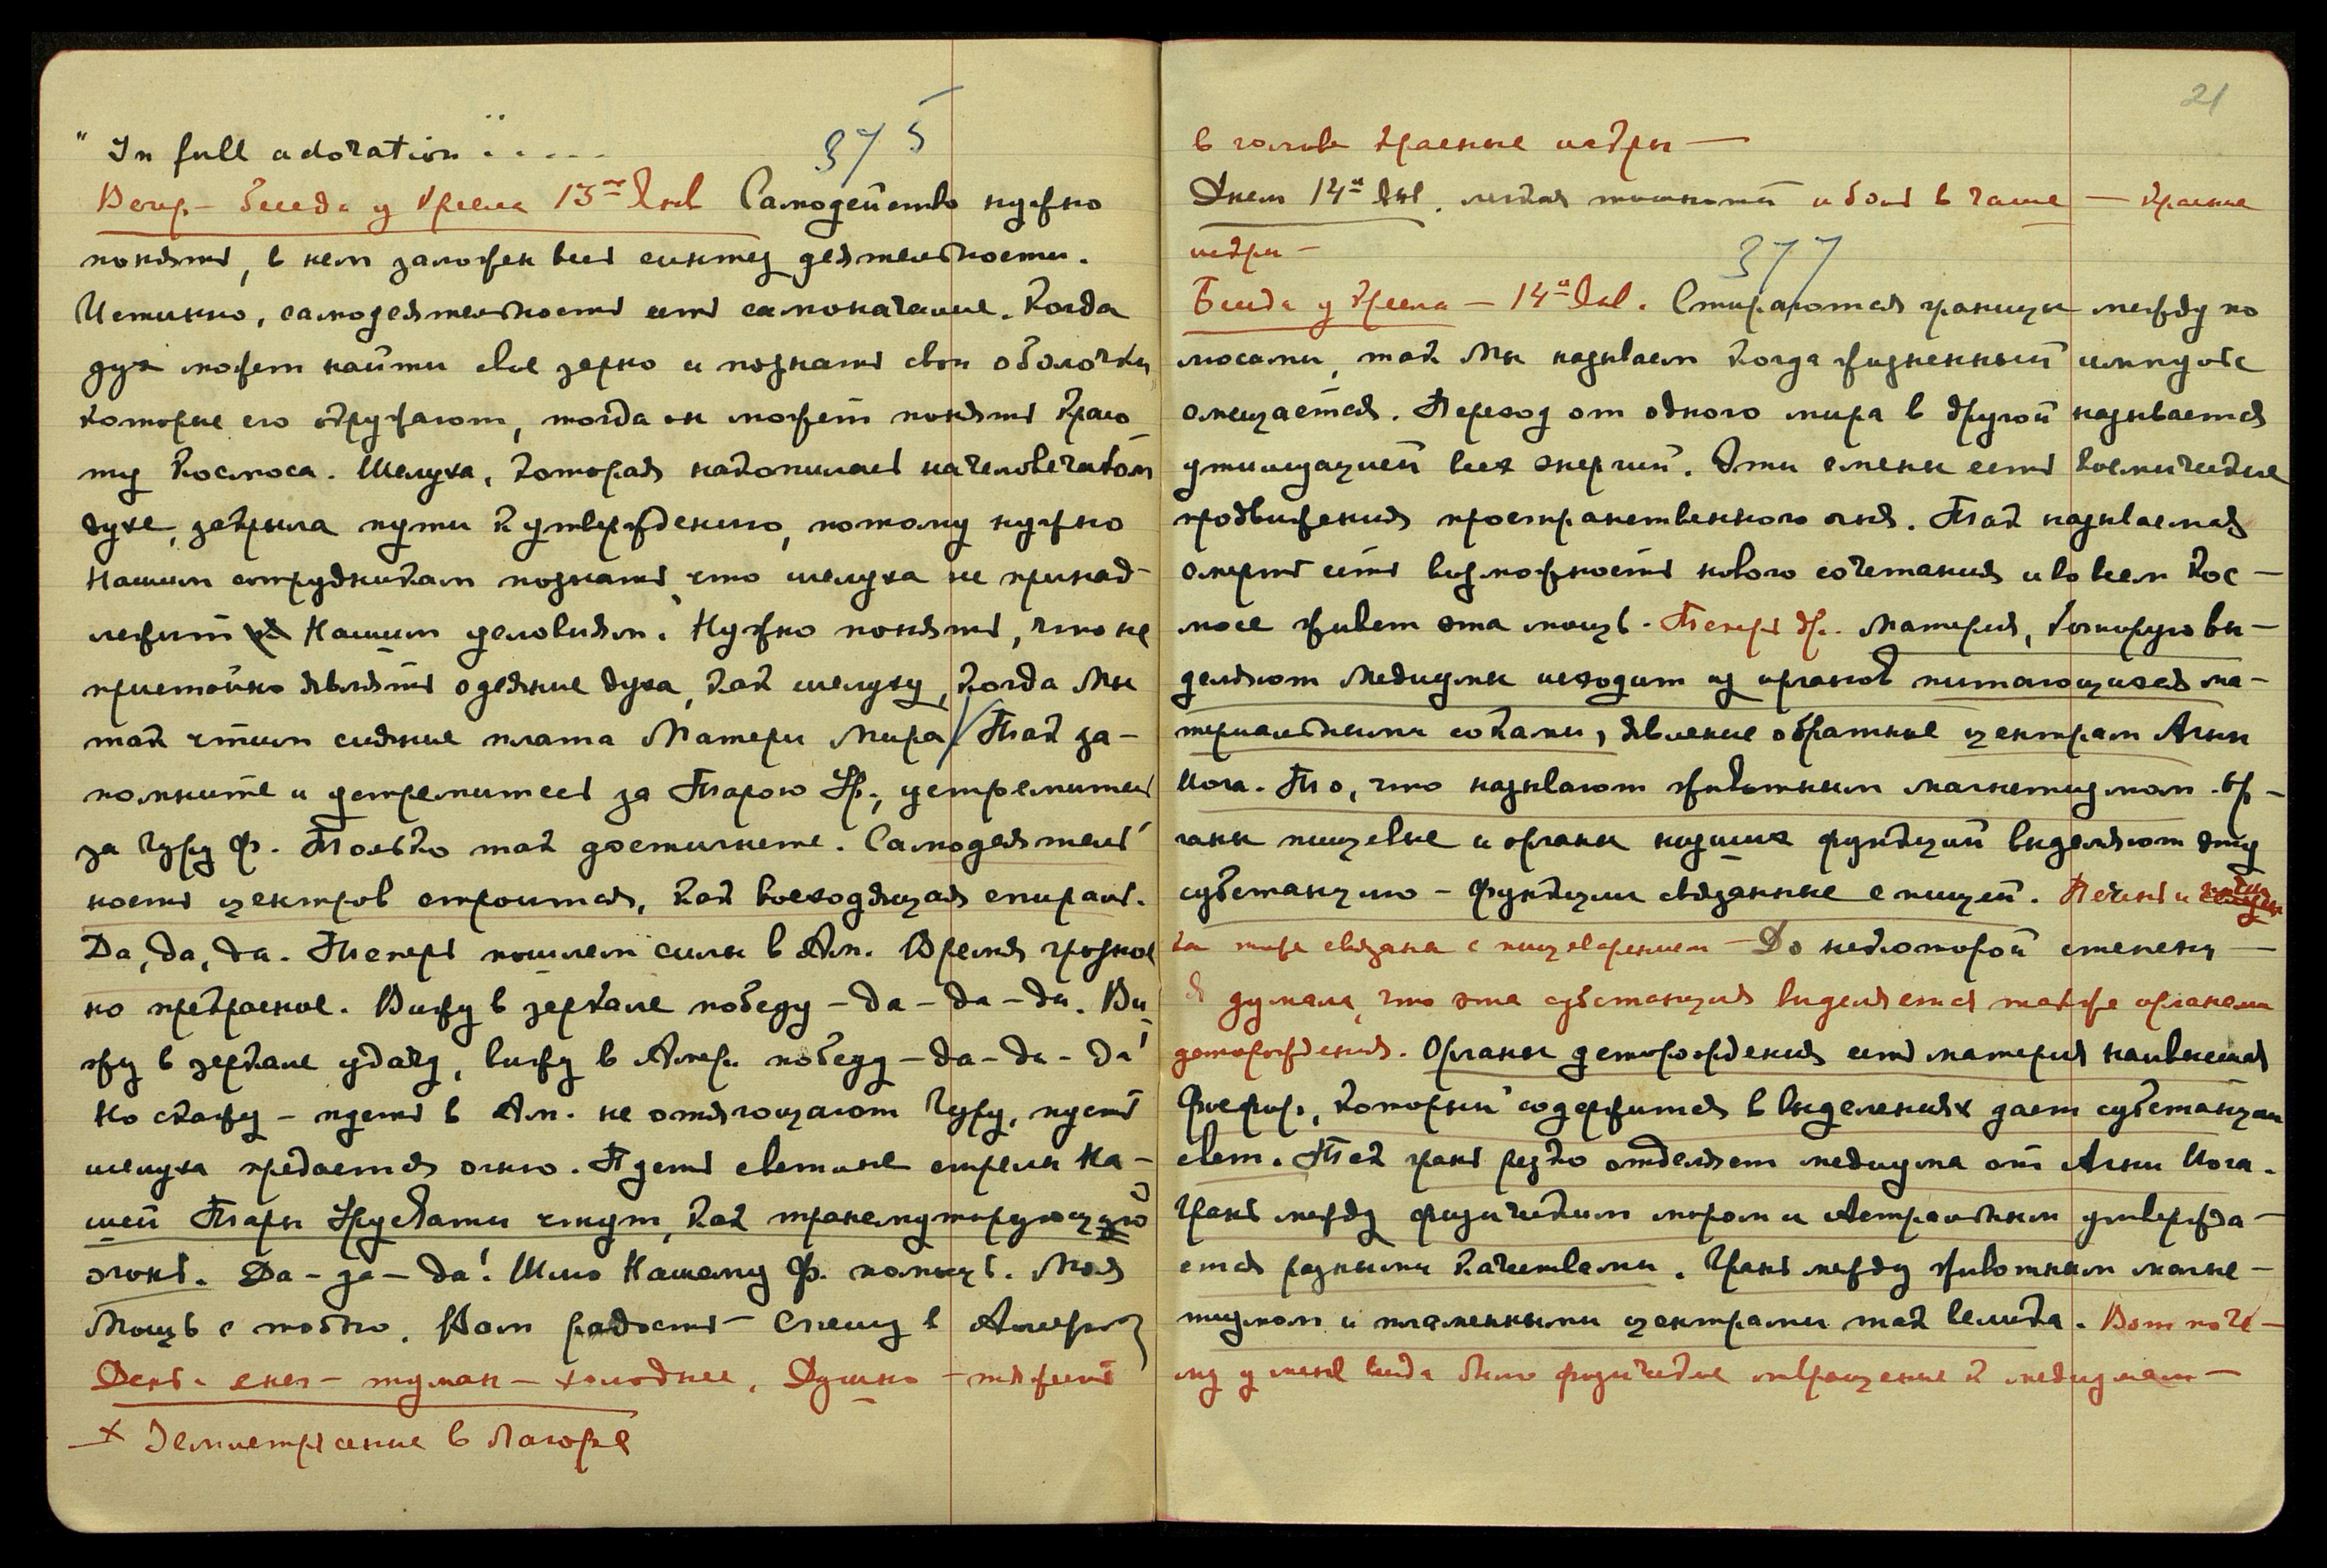 "In full adoration".....
375
Вечер – беседа у кресла 13го Янв Самодейство нужно
понять, в нем заложен весь синтез деятельности.
Истинно, самодеятельность есть самоначалие. Когда
дух может найти свое зерно и познать свои оболочки
которые его окружают, тогда он может понять красо
ту Космоса. Шелуха, которая накопилась на человеческом
духе, закрыла пути к утверждению, потому нужно
Нашим сотрудникам познать что шелуха не принад-
лежит Нашим условиям. Нужно понять, что не
пристойно являть одеяние духа, как шелуху, когда Мы
так чтим сияние плата Матери Мира/ Так за-
помните и устремитесь за Тарою Ур., устремитесь
за Гуру Ф. Только так достигнете. Самодеятель
ность центров строится, как восходящая спираль.
Да, да, да. Теперь пошлем силы в Ам. Время грозное
но прекрасное. Вижу в зеркале победу – да – да – да. Ви
жу в зеркале удачу, вижу в Амер. победу – да – да – да!
Но скажу – пусть в Ам. не отягощают Гуру, пусть
шелуха предается огню. Пусть светлые стрелы На-
шей Тары Урусвати чтут, как трансмутирующий
огонь. Да – да – да! Шлю Нашему Ф. помощь. Моя
Мощь с тобою. Нам радость – Спешу в Америку
День – снег – туман – холоднее. Душно – тяжесть
x Землетрясение в Лагоре
21
в голове красные искры –
Днем 14го Янв. легкая тошнота и боль в чаше – красные
искры –
377
Беседа у кресла – 14го Янв. Стираются границы между по
люсами, так Мы называем когда жизненный импульс
смещается. Переход от одного мира в другой называется
утилизацией всех энергий. Эти смены есть космические
продвижения пространственного огня. Так называемая
смерть есть возможность нового сочетания и во всем Кос –
мосе живет эта мощь. Теперь др. Материя, которую вы –
деляют медиумы исходит из органов питающихся ма –
териальными соками, явление обратное центрам Агни
Йога. То, что называют животным магнетизмом. Ор –
ганы пищевые и органы низших функций выделяют эту
субстанцию – функции связанные с пищей. Печень и
ка тоже связана с пищеварением – До некоторой степени –
Я думала, что эта субстанция выделяется также органами
деторождения. Органы деторождения есть материя наивысшая
Фосфор, который содержится в выделениях дает субстанции
свет. Так грань резко отделяет медиума от Агни Йога.
Грань между физическим миром и Астральным утвержда –
ется разными качествами. Грань между животным магне –
тизмом и пламенными центрами так велика. Вот поче –
му у меня всегда было физическое отвращение к медиумам –